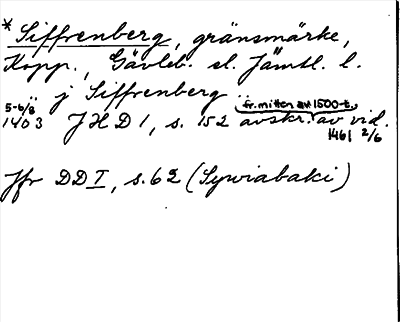 * Siffrenberg, gränsmärke,
Kopp., Gävleb. el. Jämtl. l.
.. j Siffrenberg ..
fr. mitten av 1500-t.
5-6/8 1403 JHD 1, s. 152 avskr. av vid. 1461 2/6
Jfr DD I, s. 62 (Sywiabaki)